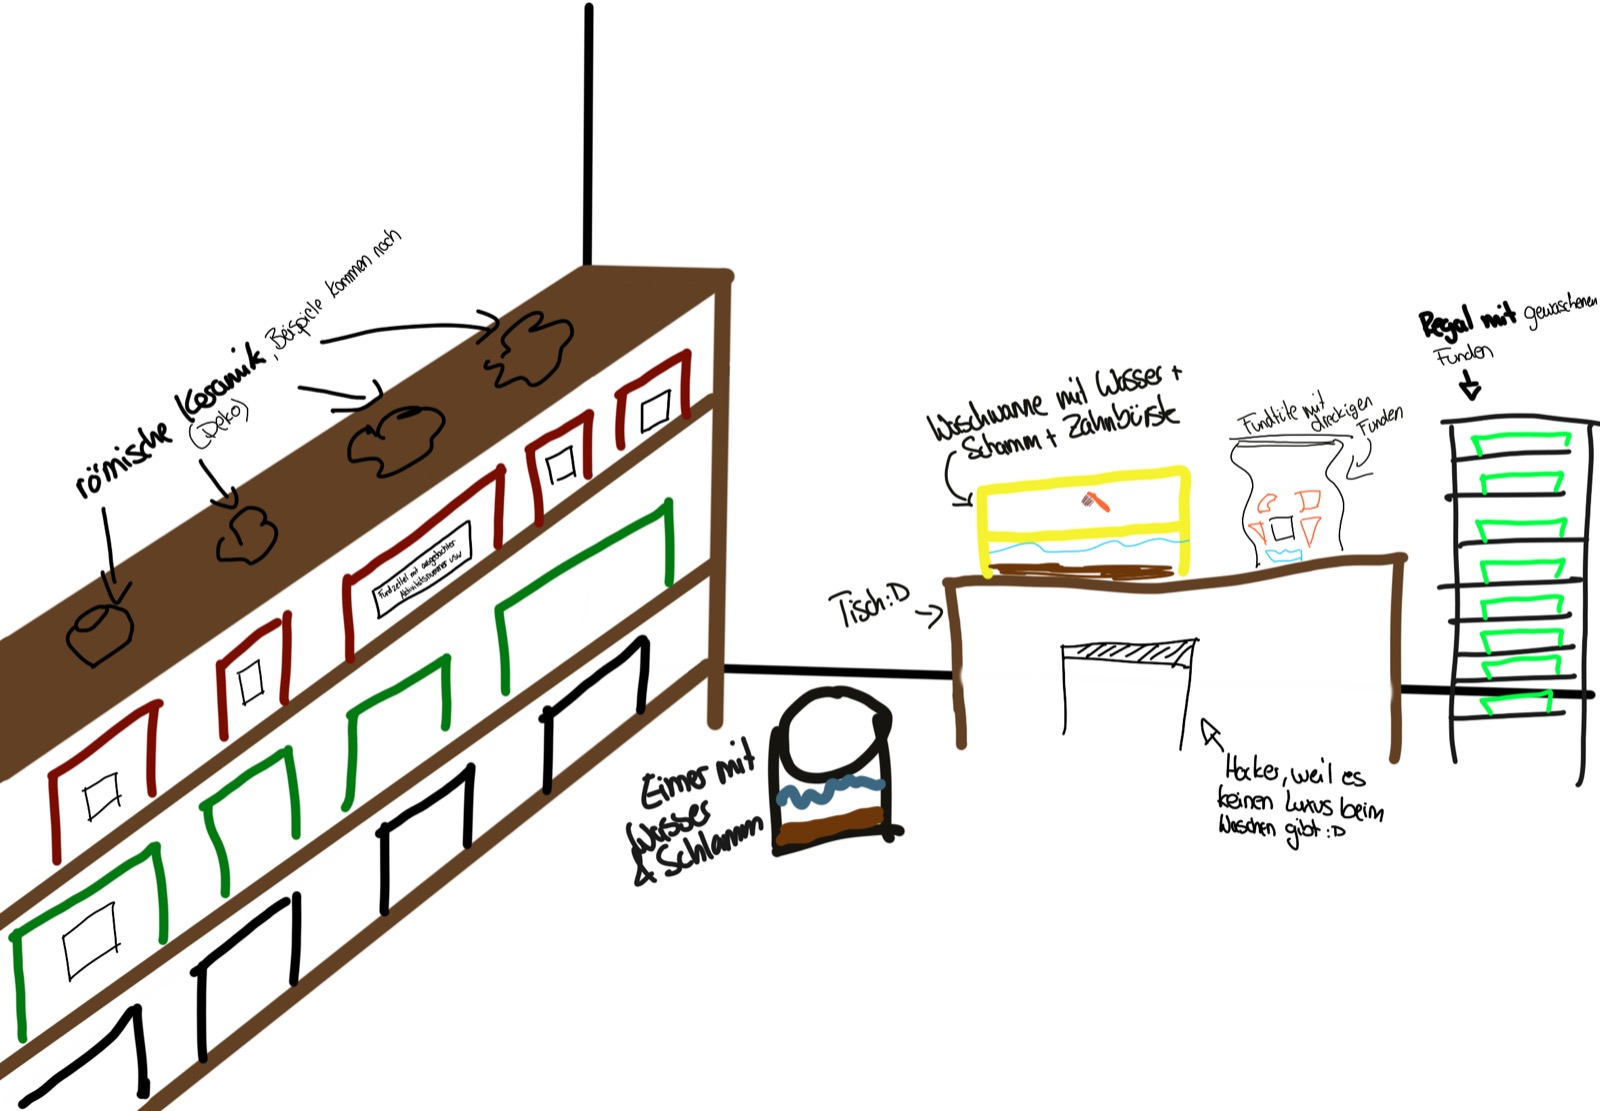 römische Keramik, Beispiele kommen noch
(Deko)
Fundzettel mit ausgedachter
Aktivitätsnummer usw
Waschwanne mit Wasser +
Schamm + Zahnbürste
Fundtüte mit
dreckigen
Funden
Regal mit gewaschenen
Funden
Tisch :D
Eimer mit
Wasser
& Schlamm
Hocker, weil es
keinen Luxus beim
Waschen gibt :D